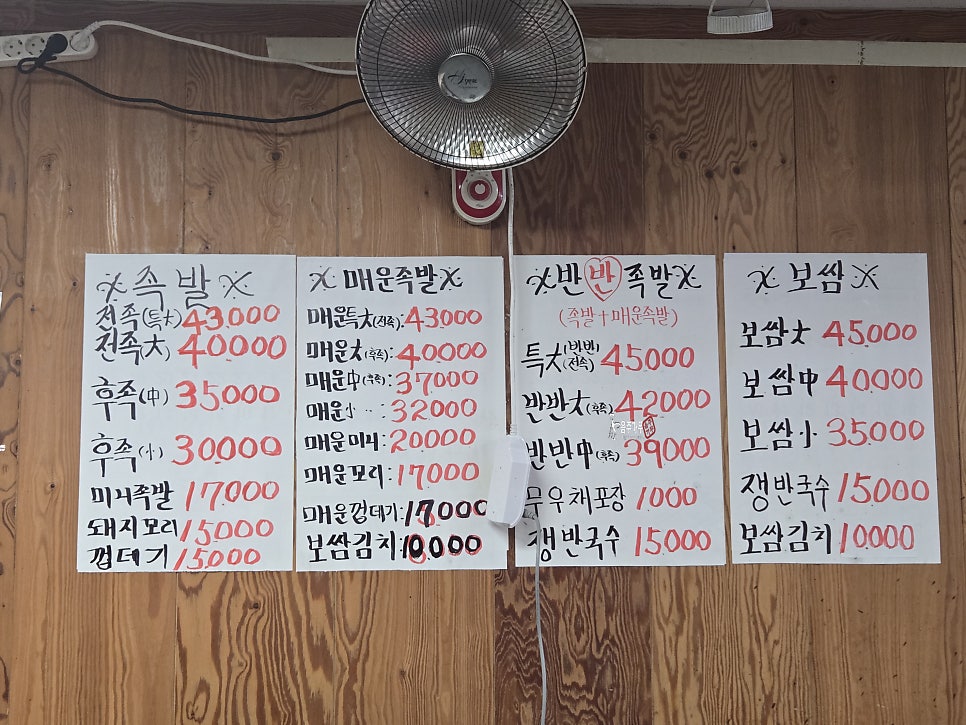 ※족발※
전족(특大)43.000
전족(大) 40.000
후족(中) 35.000
후족(小) 30.000
미니족발 17.000
돼지모리 15.000
껍데기 15.000
※매운족발※
매운특大(전족):43.000
매운大(후족):40000
매운中(후족):37000
매운小 〃 : 32000
매운미니: 20000
매운모리: 17.000
매운껍데기:17.000
보쌈김치10.000
※반반족발※
(족발+매운족발)
특大(반반)(전족) 45000
반반大(후족) 42000
반반中(후족) 39000
무우채포장 1.000
쟁반국수 15.000
※보쌈※
보쌈大 45.000
보쌈中 40.000
보쌈小 35.000
쟁반국수 15.000
보쌈김치 10.000